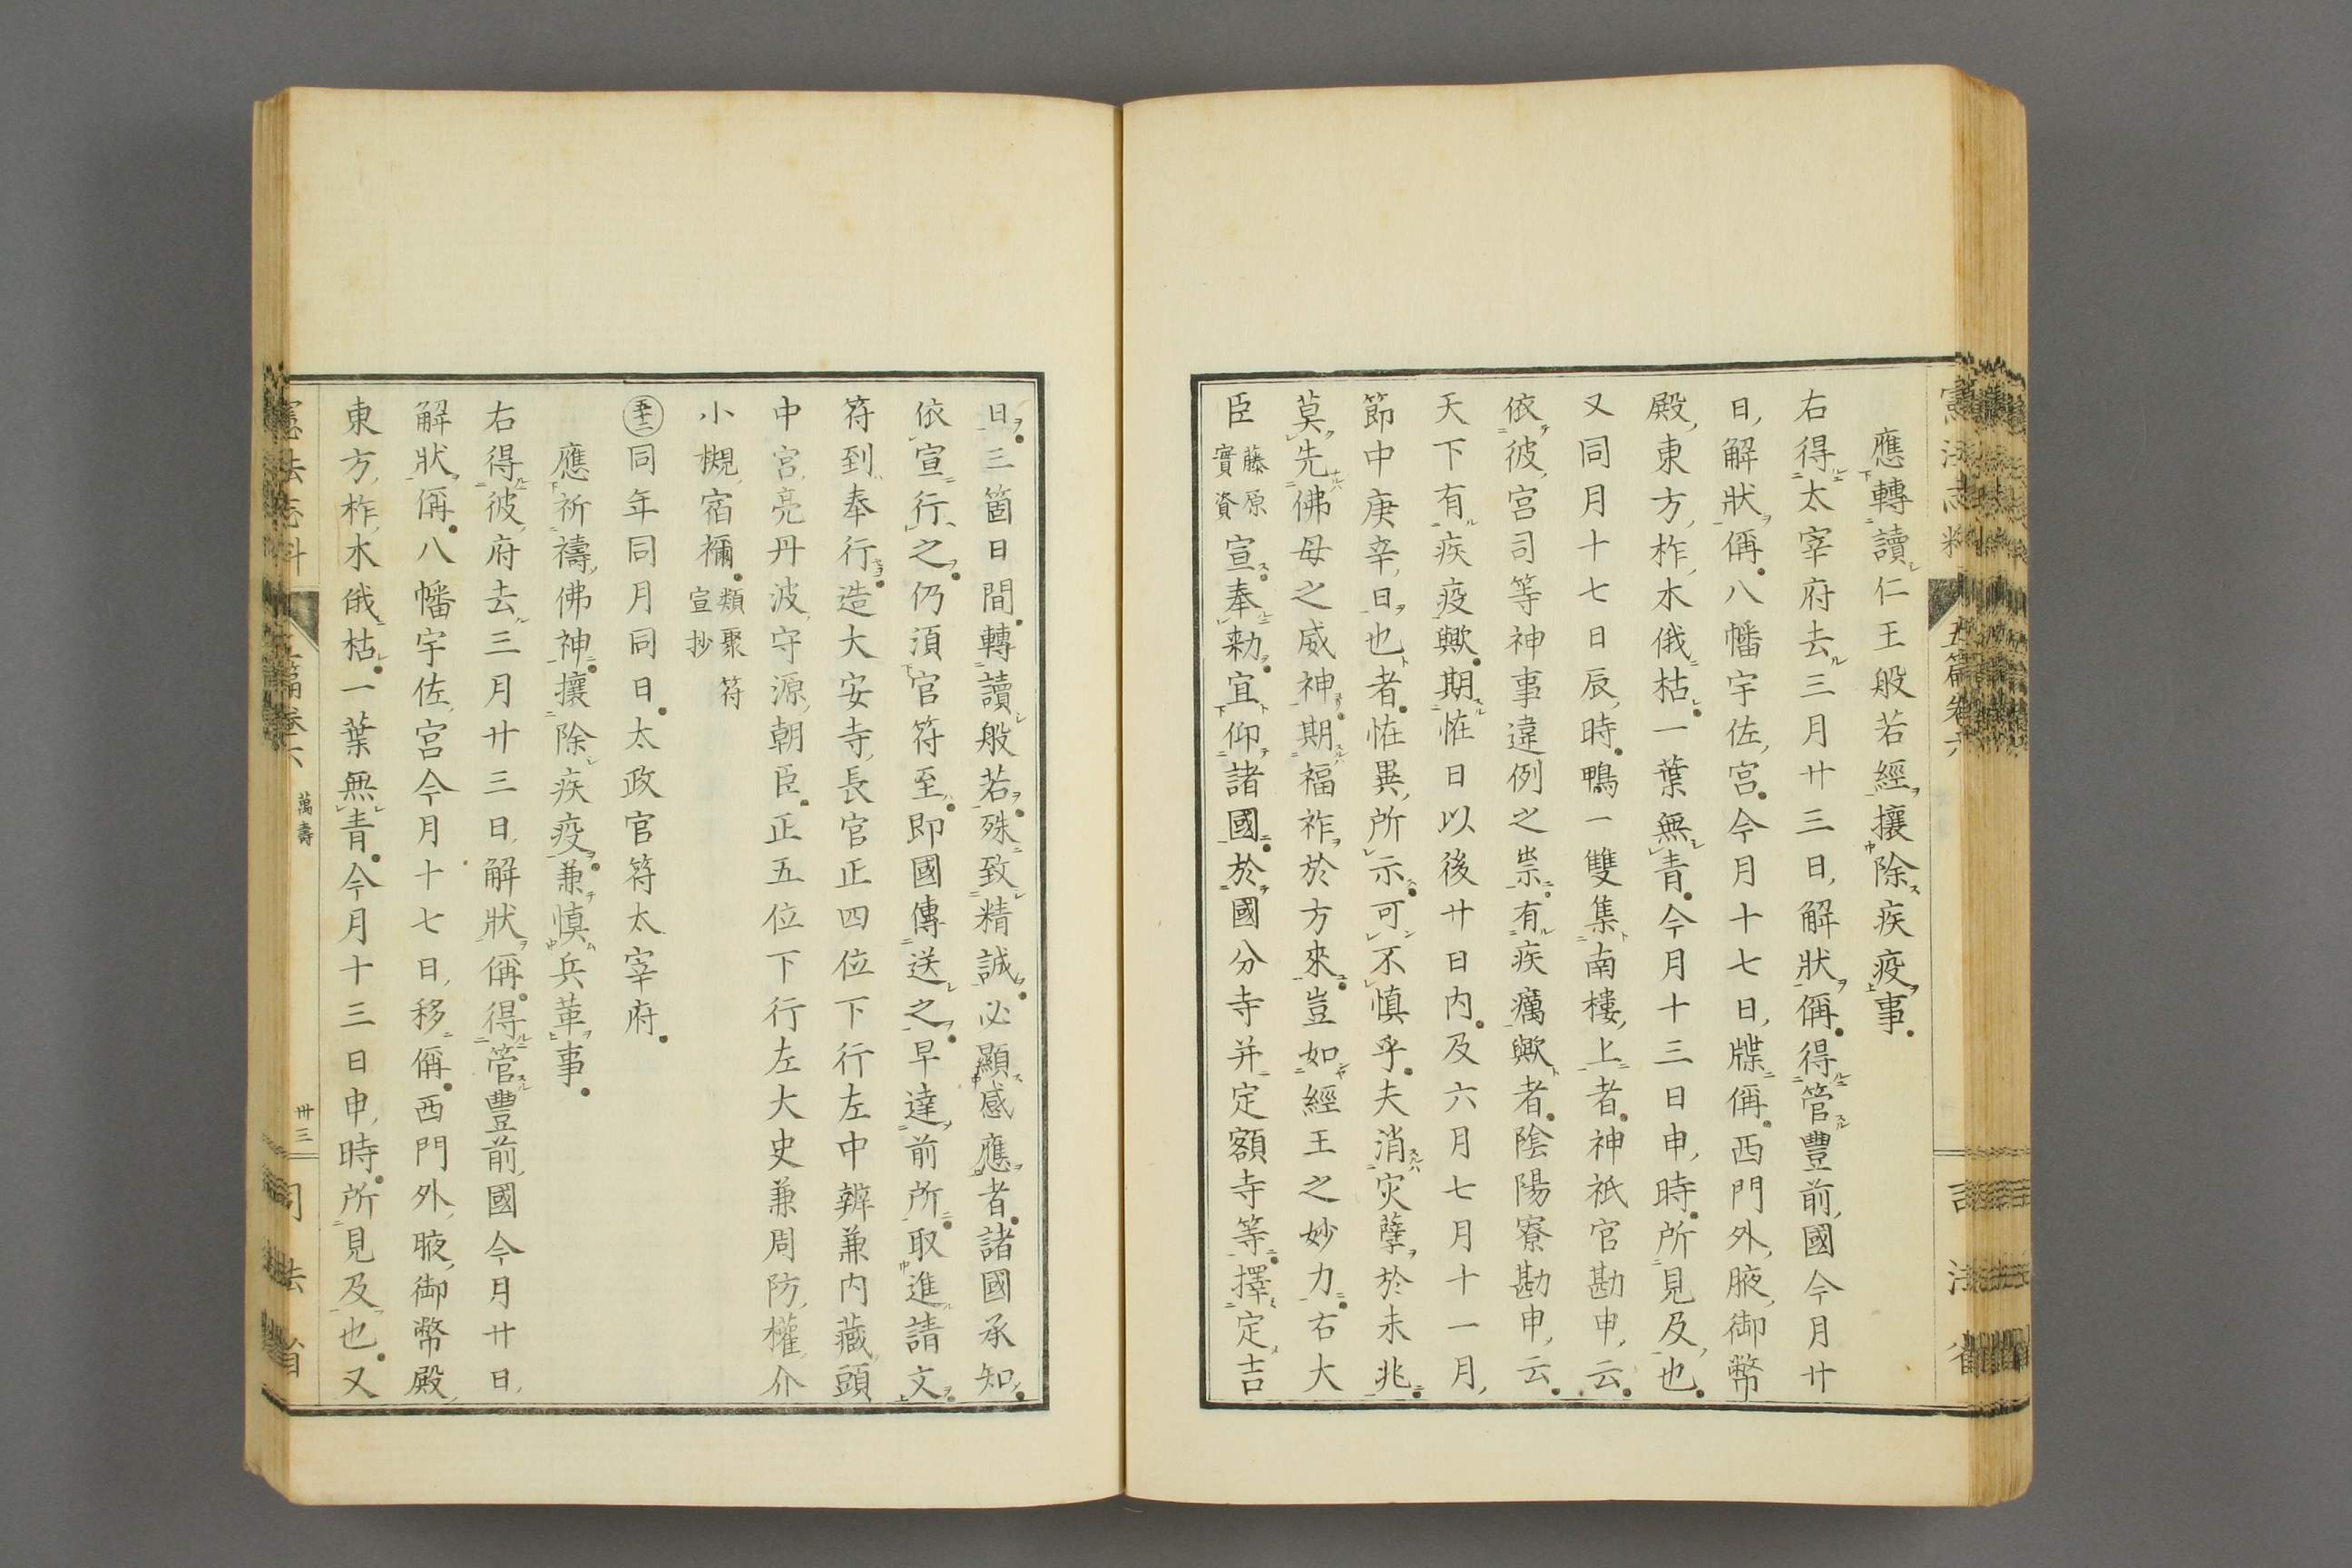 應轉讀仁王般若經攘除疾疫事。
右得太宰府去三月廿三日,解狀偁。得管豐前,國今月廿
日,解狀偁。八幡宇佐,宮。今月十七日,牒偁。西門外,腋,御幣
殿,東方,柞,木俄枯。一葉無青。今月十三日申,時。所見及,也。
又同月十七日辰,時。鴨一雙集南樓,上者。神祇官勘申,云。
依彼,宮司等神事違例之祟。有疾癘歟者。陰陽寮勘申,云。
天下有疾疫歟。期恠日以後廿日内。及六月七月十一月,
節中庚辛,日也者。恠異,所示。可不慎乎。夫消灾孽於未兆。
莫先佛母之威神。期福祚於方來。豈如經王之妙力。右大
臣藤原實資宣。奉勅。宜仰諸國。於國分寺并定額寺等。擇定吉
日。三箇日間。轉讀般若。殊致精誠。必顯感應者。諸國承知。
依宣行之。仍須官符至。即國傳送之。早達前所。取進請文。
符到奉行。造大安寺,長官正四位下行左中辨兼内藏,頭
中宮,亮丹波,守源,朝臣。正五位下行左大史兼周防,權,介
小槻,宿禰。類聚符宣抄
五十二同年同月同日。太政官符太宰府。
應祈禱佛神。攘除疾疫。兼慎兵革事。
右得彼,府去三月廿三日,解狀偁。得管豐前,國今月廿日,
解狀偁。八幡宇佐,宮今月十七日,移偁。西門外,腋,御幣殿,
東方,柞,木俄枯。一葉無青。今月十三日申,時。所見及也。又
萬壽
卅三